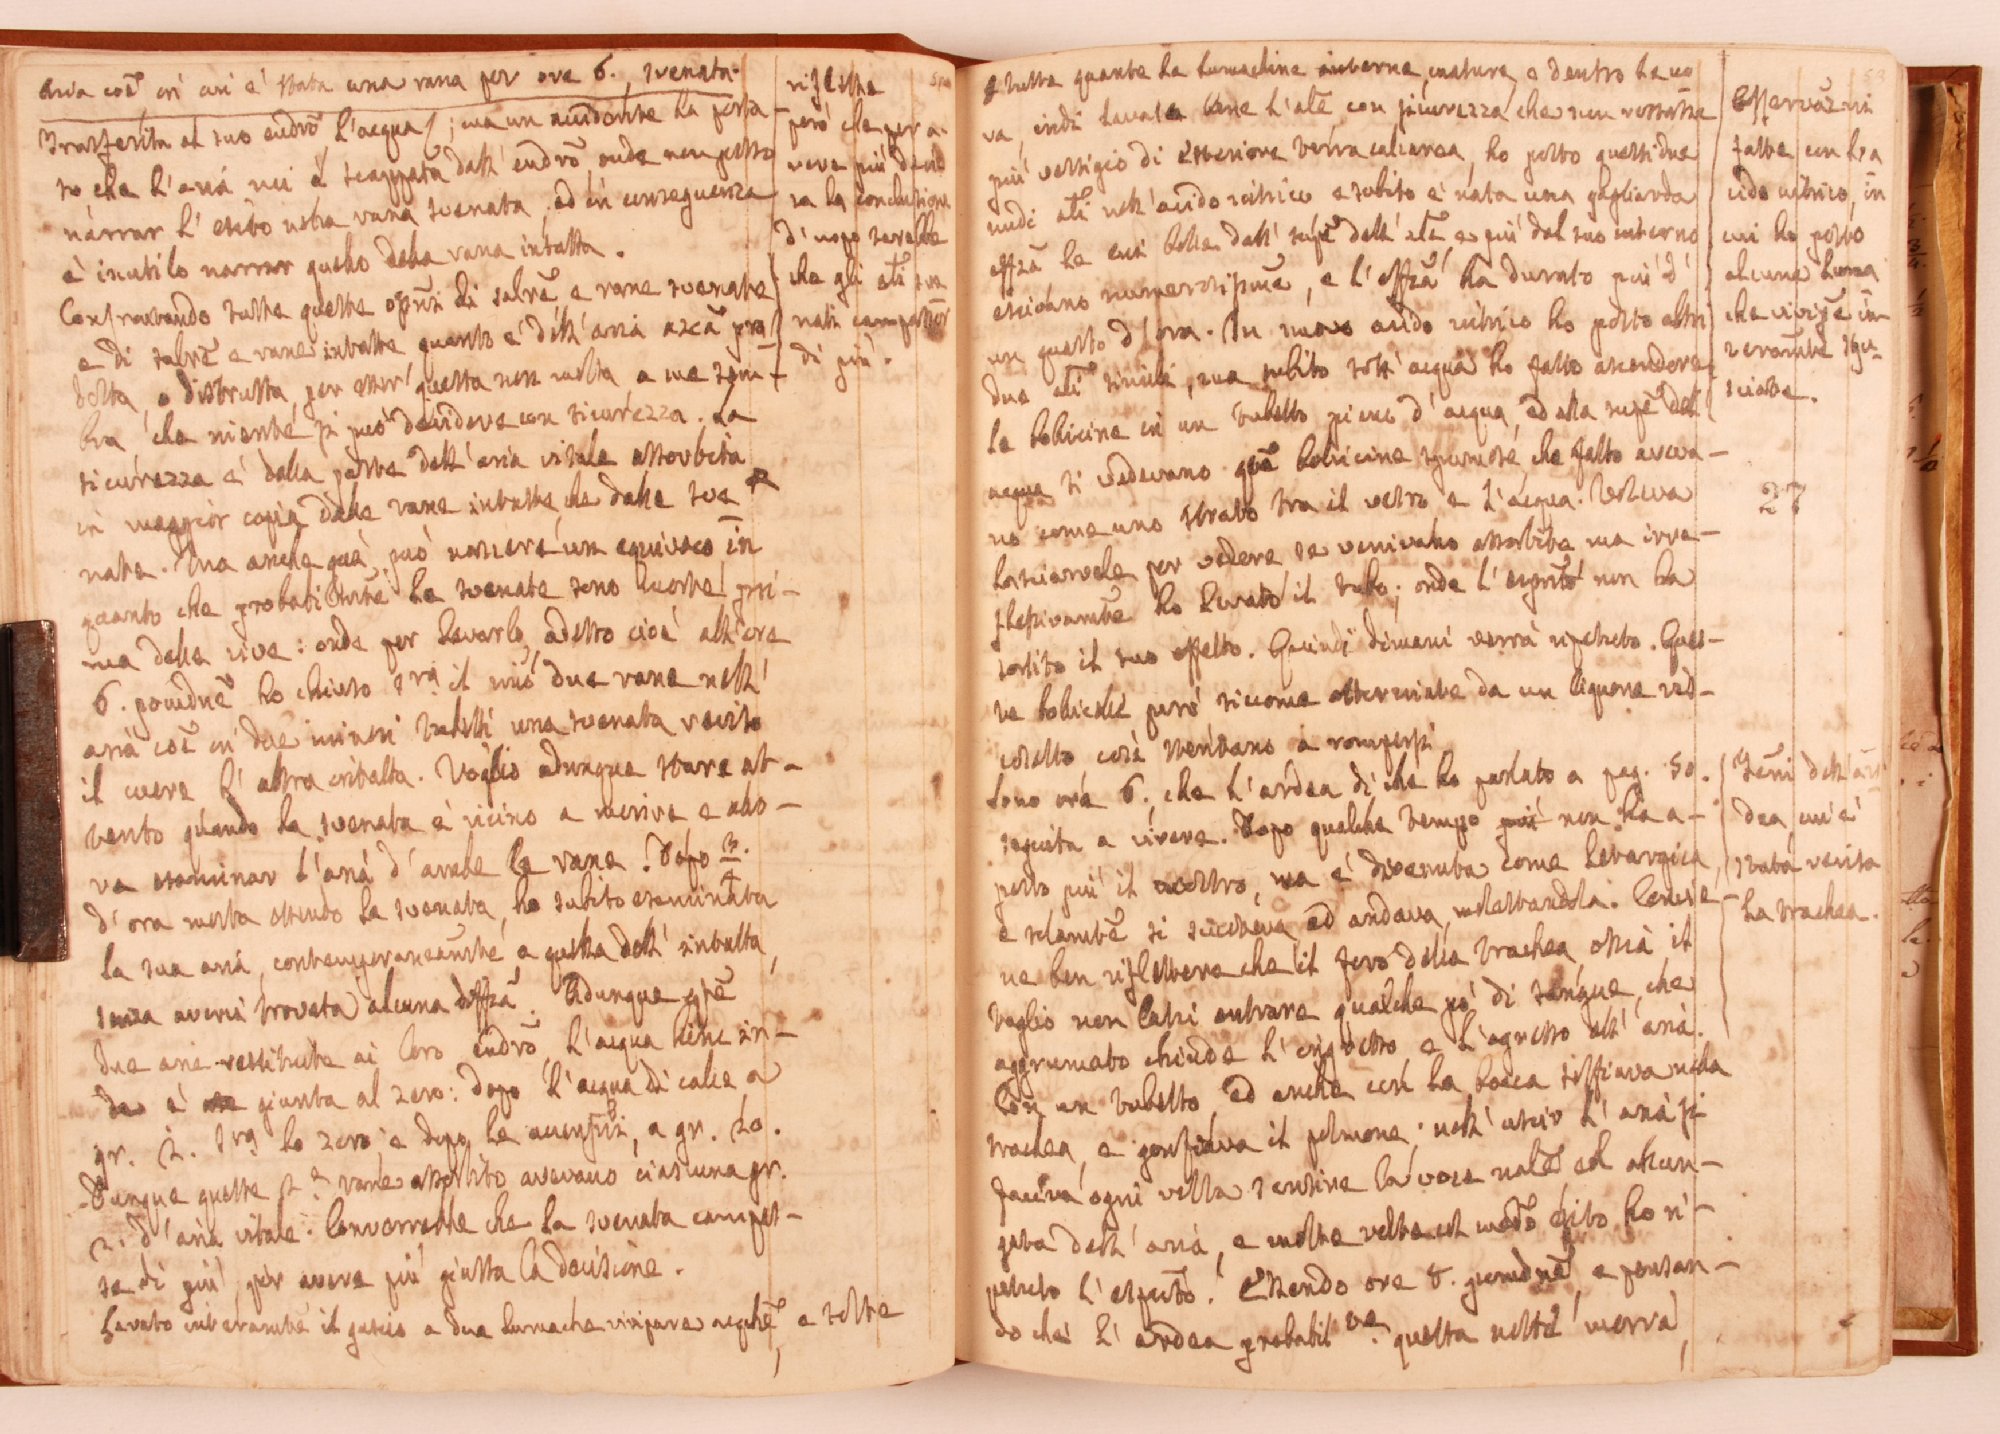 Aria coē in cui è stata una rana per ore 6., svenata.
Trasferita al suo eudrō, l'acqua ; ma un accidente ha porta-
to che l'aria mi è scappata dall'eudrō onde non posso
narrar l'esito nella rana svenata, ed in conseguenza
è inutile narrar quello della rana intatta.
Confrontando tutte queste di salrē e rane svenate
e di salrē e rane intatte, quanto è dell'aria pro
dotta, o distrutta per esser questa non molta a me sem-
bra, che niente si può decidere con sicurezza. La
sicurezza è della parte dell'aria vitale assorbita
in maggior copia dalle rane intatte, che dalle sve
nate. Ma anche quà può nascere un equivoco in
quanto che probabilmte le svenate sono morte pri-
ma delle vive: onde per levarlo, adesso cioè all'ore
6. pomdne ho chiuso il due rane nell'
aria coē in due tubetti una svenata reciso
il cuore, l'altra intatta. Voglio adunque stare at-
tento quando la svenata è vicino a morire e allo-
ra esaminar l'aria d'ambe le rane. Dopo 3/4.
d'ora morta essendo la svenata, ho subito esaminata
la sua aria, contemporaneamte a quella dell'intatta,
senza avervi trovata alcuna diffzā. Adunque qste
due arie restituite ai loro eudrō, l'acqua
è giunta al zero: dopo l'acqua di calce a
gr. 2. lo zero, e dopo le accensni, a gr. 20.
Dunque queste 2e rane assorbito avevano ciascuna gr.
2. d'aria vitale. Converrebbe che la svenata campas-
se di più, per avere più giusta la decisione.
Levato interamte il guscio a due lumache vivipare acqche, e tolte
rifletto
però che per a-
vere più deci
sa la conclusione
d'uopo sarebbe
che gli ali sve
nati campasser
di più.
e tutte quante le lumachine interne, mature, e dentro la uo
va, indi lavate bene l'ale con sicurezza che non restasse
più vestigio di esteriore terra calcarea, ho posto questi due
nudi ali nell'acido nitrico e subito è nata una gagliarda
effzā le cui bolle dall'supe dell'ale, e più dal suo interno
escivano numerosissime, e l'effzā ha durato più d'
un quarto d'ora. In nuovo acido nitrico ho posto altri
due ali simili, ma subito sott'acqua ho fatto ascendere
le bollicine in un tubetto pieno d'acqua, ed alla supe dell'
acqua si vedevano qste bollicine spumose, che fatto aveva-
no come uno strato tra il vetro e l'acqua. Voleva
lasciarvele per vedere se venivano assorbite ma irre-
flessivamte ho levato il tubo; onde l'esprto non ha
sortito il suo effetto. Quindi dimani verrà ripetuto. Ques-
te bollicelle però siccome attorniate da un liquore vis-
cosetto così stentano a rompersi
Sono ore 6., che l'ardea di che ho parlato a pag. 50.
seguita a vivere. Dopo qualche tempo non ha a-
perto più il rostro, ma è divenuta come letargica,
e solamte si scuoteva ed andava, molestandola. Convie-
ne ben riflettere che il foro della trachea ossia il
taglio non lasci entrare qualche pò di sangue, che
aggrumato chiude l'ingresso e l'egresso all'aria.
Con un tubetto, ed anche con la bocca soffiava nella
trachea, e gonfiava il polmone; nell'uscir l'aria si
faceva ogni volta sentire la voce nale ed
gata dell'aria, e molte volte col medo esito ho ri-
petuto l'esprto. Essendo ore 8. pomdne, e pensan-
do che l'ardea probabilte questa notte morrà,
Osservazni
fatte con l'a
cido nitrico, in
cui ho posto
alcune luma
che vivipe in-
teramte sgu-
sciate.
27
Femi dell'ar
dea, cui è
stata recisa
la trachea.